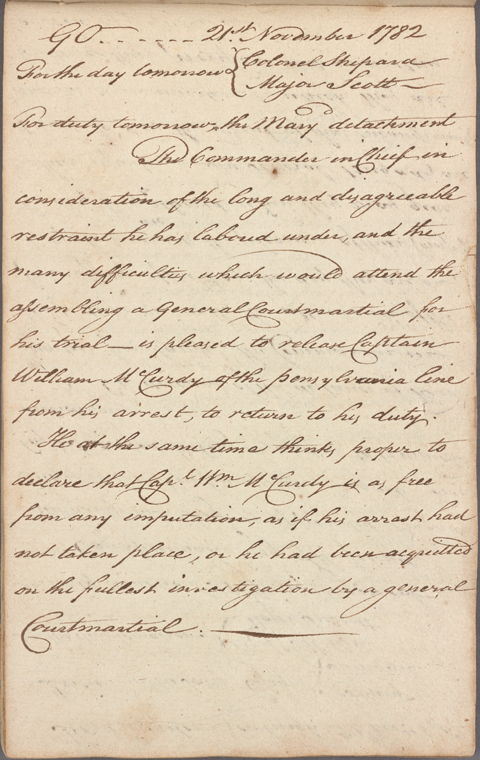 GO. - - - - - - 21st November 1782
For the day tomorrow { Colonel Shepard
Major Scott —
For duty tomorrow, the Mary'd detachment
The Commander in Chief in
consideration of the long and disagreeable
restraint he has laboud under, and the
many difficulties which would attend the
assembling a General Courtmartial for
his trial — is pleased to release Captain
William McCurdy of the pensylvania line
from his arrest, to return to his duty.
He at the same time thinks proper to
declare that Capt. Wm McCurdy is as free
from any imputation, as if his arrest had
not taken place, or he had been acquitted
on the fullest investigation by a general
Courtmartial. —